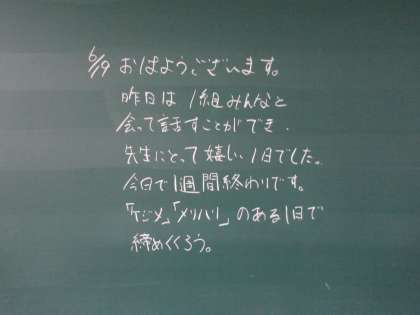 6/9 おはようございます。
昨日は1組みんなと
会って話すことができ、
先生にとって嬉しい1日でした。
今日で1週間終わりです。
「ケジメ」「メリハリ」のある1日で
締めくくろう。